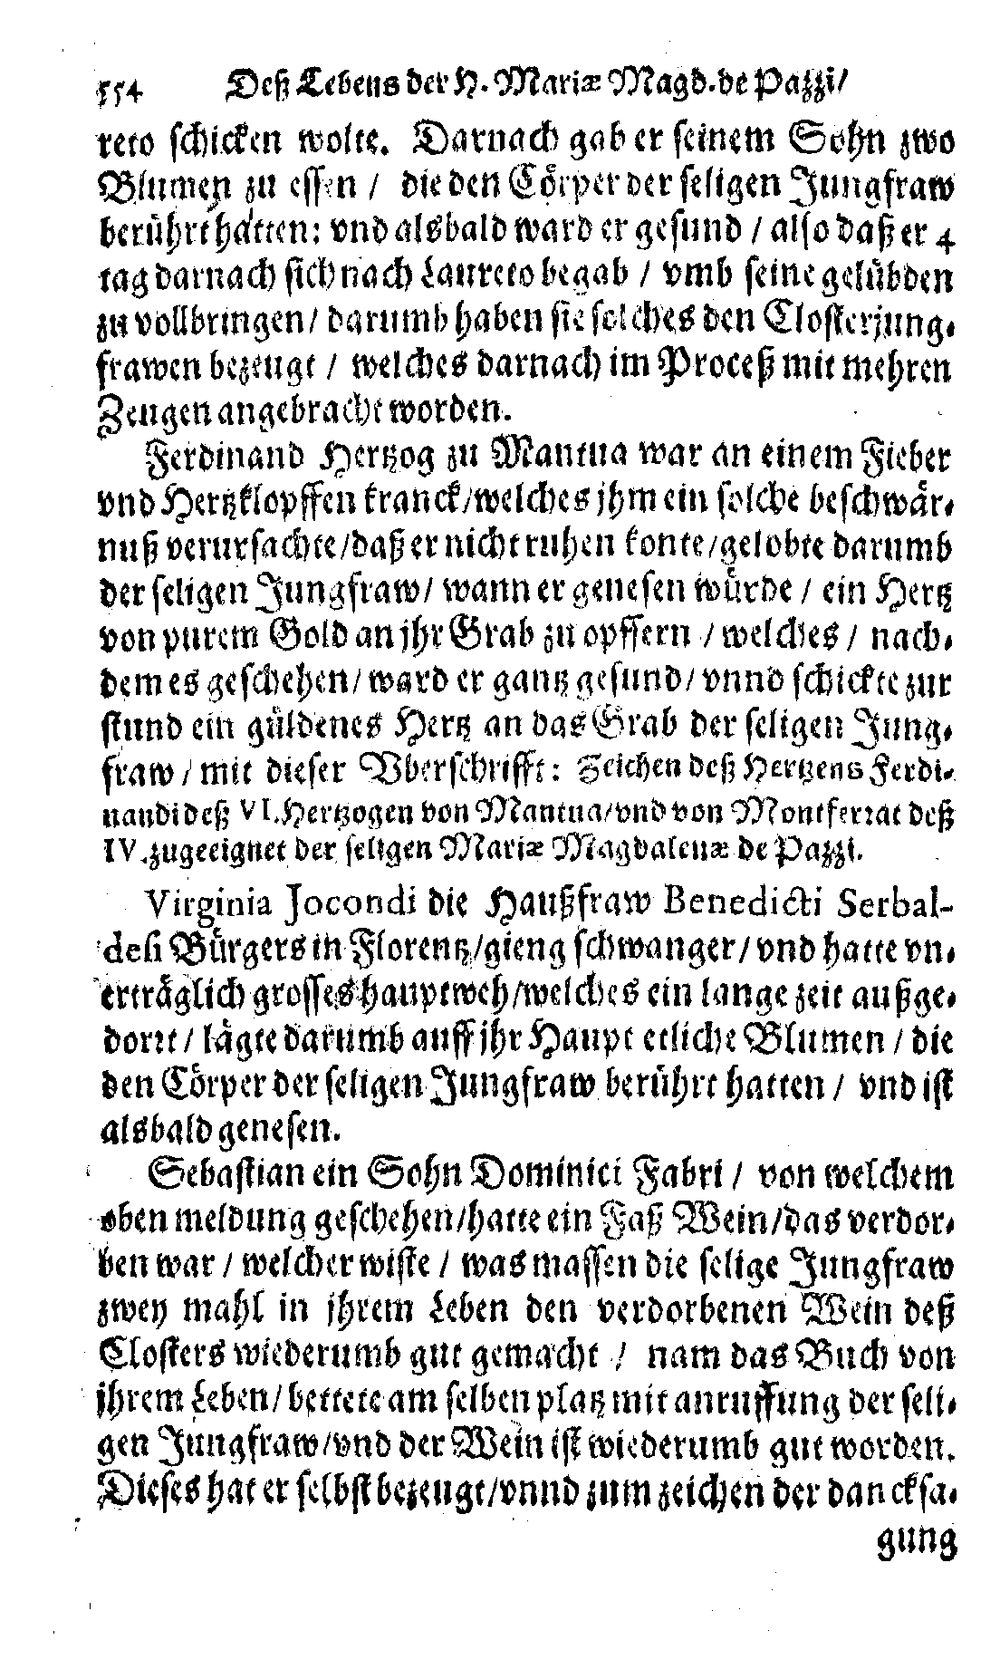 554 Deß Lebens der H. Mariæ Magd. de Pazzi/
reto schicken wolte. Darnach gab er seinem Sohn zwo
Blumen zu essen / die den Cörper der seligen Jungfraw
berührt hatten: vnd alsbald ward er gesund / also daß er 4
tag darnach sich nach Laureto begab / vmb seine gelübden
zu vollbringen / darumb haben sie solches den Closterjung-
frawen bezeugt / welches darnach im Proceß mit mehren
Zeugen angebracht worden.
Ferdinand Hertzog zu Mantua war an einem Fieber
vnd Hertzklopffen kranck/welches jhm ein solche beschwär-
nuß verursachte/daß er nicht ruhen konte/gelobte darumb
der seligen Jungfraw/ wann er genesen würde / ein Hertz
von purem Gold an jhr Grab zu opffern / welches / nach-
dem es geschehen/ ward er gantz gesund/ vnnd schickte zur
stund ein güldenes Hertz an das Grab der seligen Jung-
fraw / mit dieser Vberschrifft: Zeichen deß Hertzens Ferdi-
nandi deß VI. Hertzogen von Mantua/vnd von Montferrat deß
IV. zugeeignet der seligen Mariæ Magdalenæ de Pazzi.
Virginia Jocondi die Haußfraw Benedicti Serbal-
desi Bürgers in Florentz/gieng schwanger/ vnd hatte vn-
erträglich grosses hauptweh/welches ein lange zeit außge-
dorrt / lägte darumb auff jhr Haupt etliche Blumen / die
den Cörper der seligen Jungfraw berührt hatten / vnd ist
alsbald genesen.
Sebastian ein Sohn Dominici Fabri / von welchem
oben meldung geschehen/hatte ein Faß Wein/das verdor-
ben war / welcher wiste / was massen die selige Jungfraw
zwey mahl in jhrem Leben den verdorbenen Wein deß
Closters wiederumb gut gemacht / nam das Buch von
jhrem Leben/ bettete am selben platz mit anruffung der seli-
gen Jungfraw/vnd der Wein ist wiederumb gut worden.
Dieses hat er selbst bezeugt/vnnd zum zeichen der dancksa-
gung